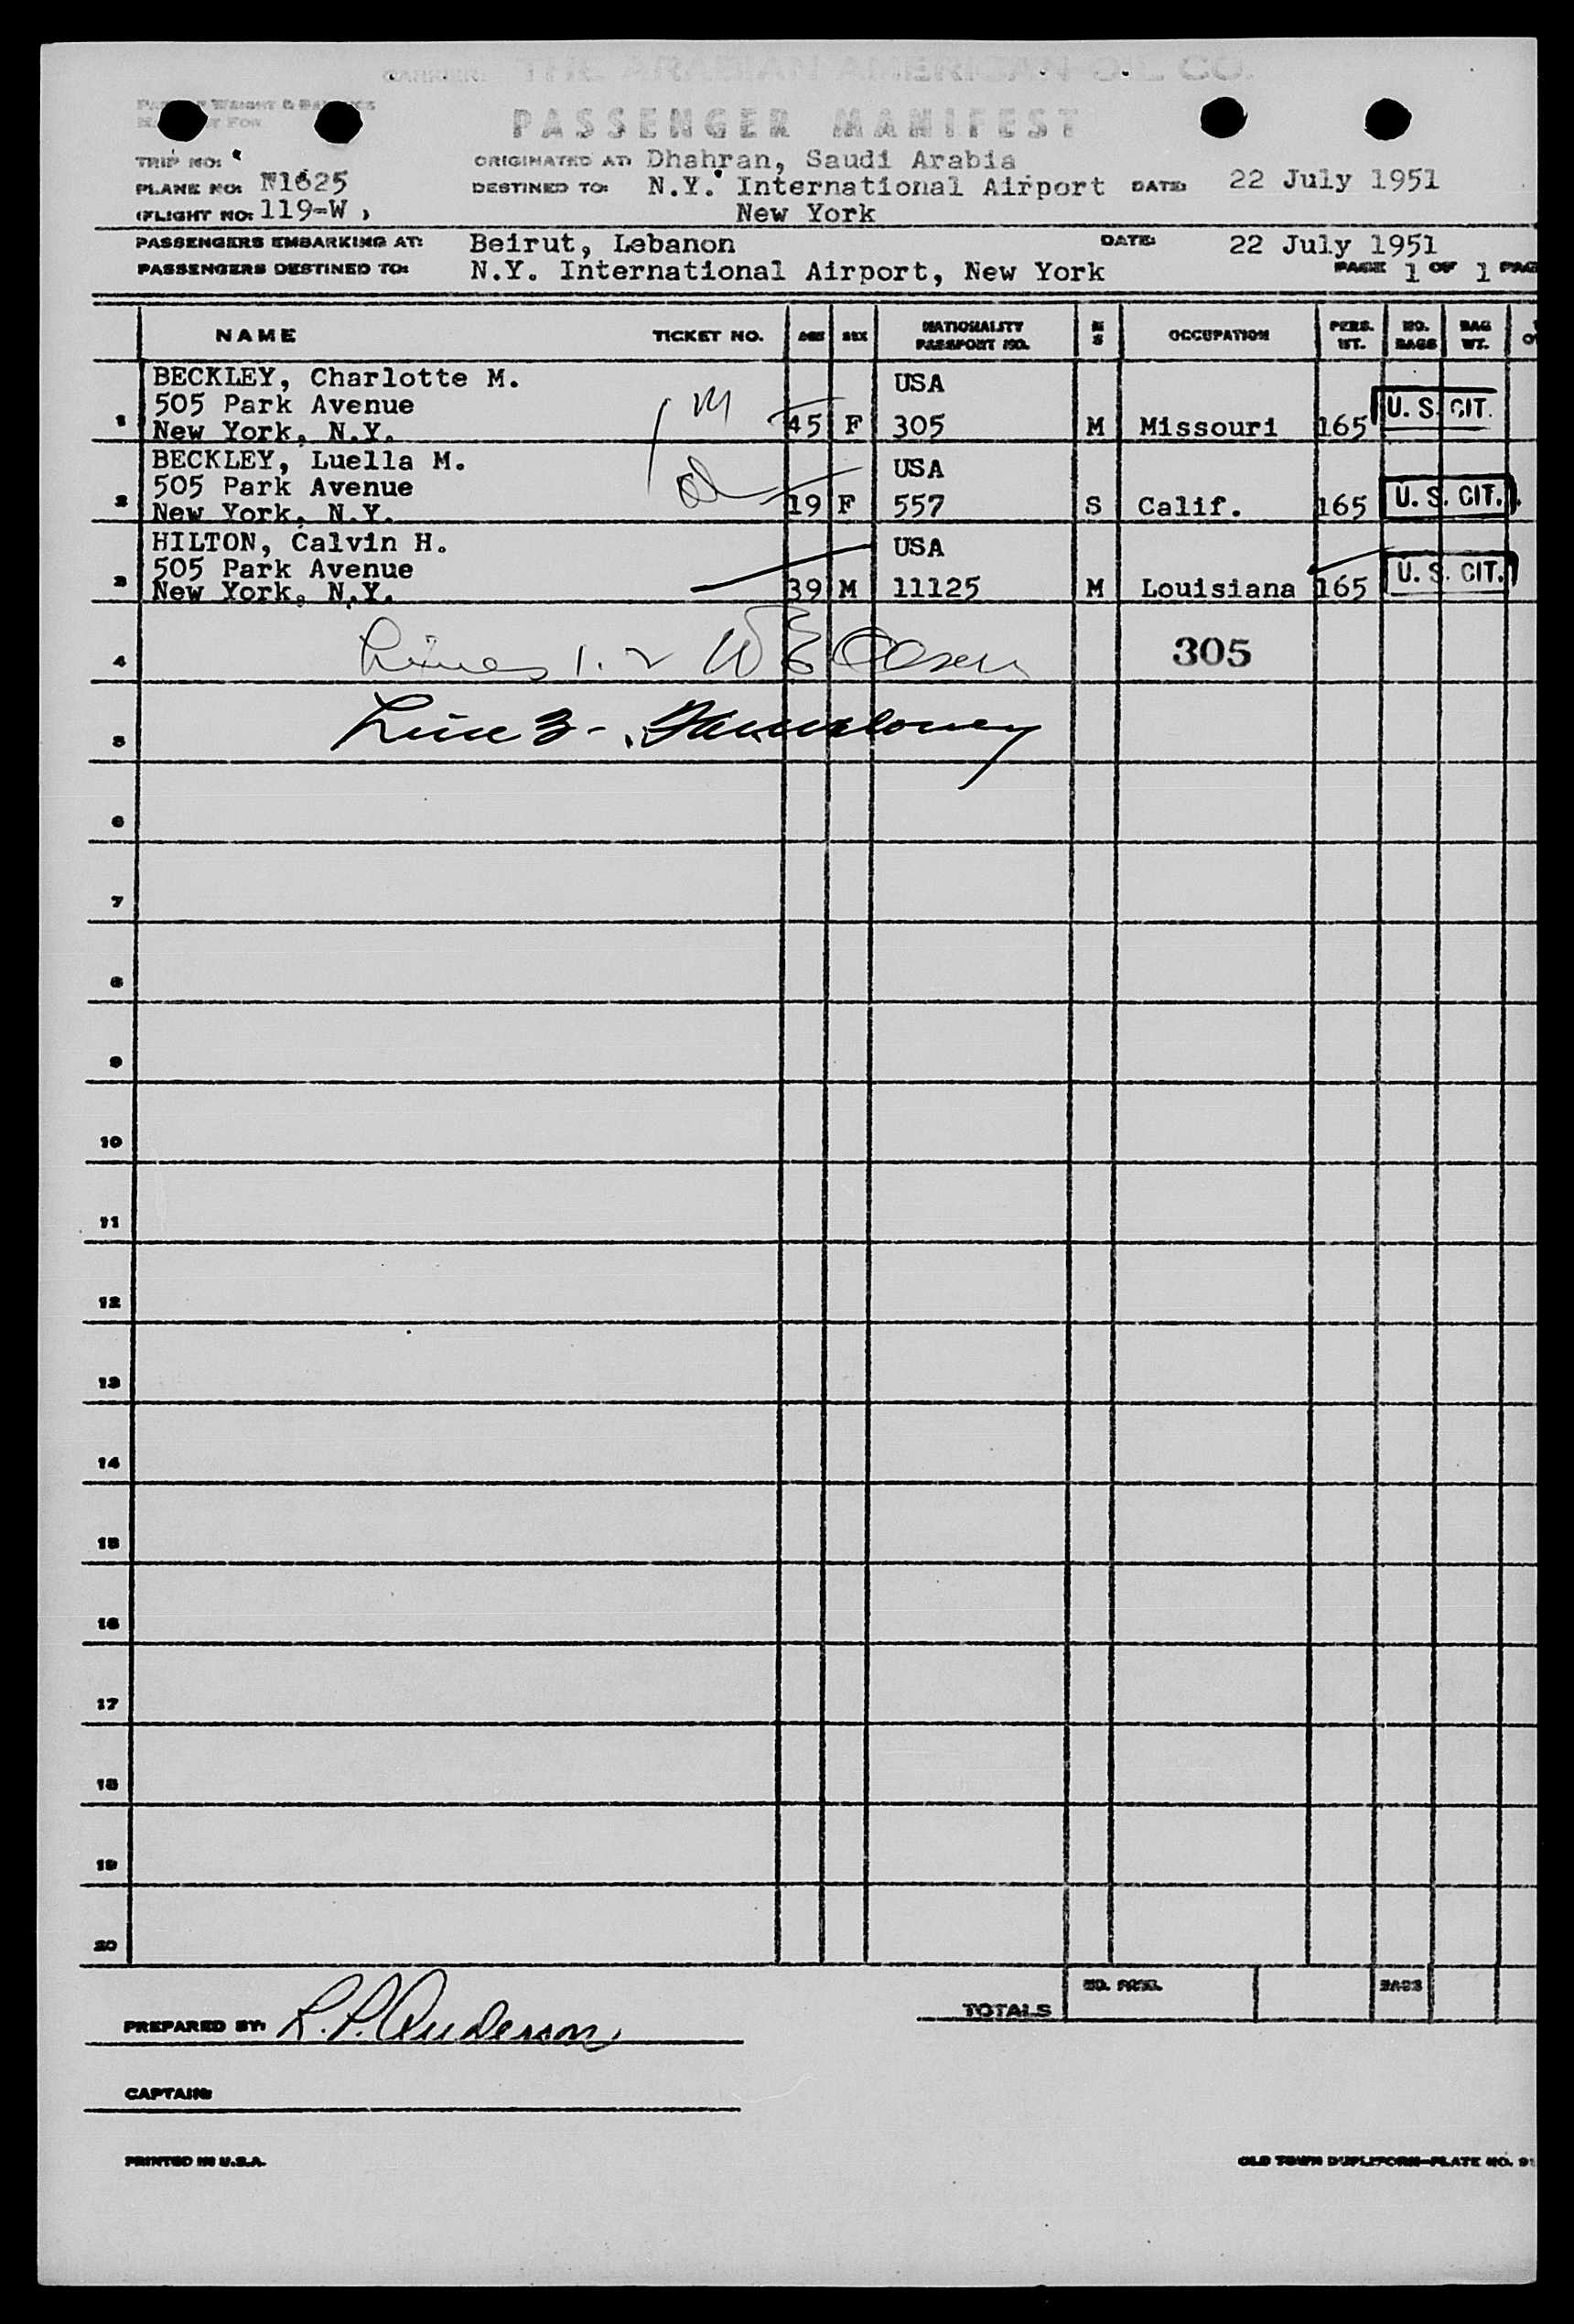 CARRIER: THE ARABIAN AMERICAN OIL CO.
PASSENGER MANIFEST
TRIP NO:
ORIGINATED AT: Dhahran, Saudi Arabia
PLANE NO: N1625
DESTINED TO: N.Y. International Airport DATE: 22 July 1951
(FLIGHT NO: 119-W )
New York
PASSENGERS EMBARKING AT: Beirut, Lebanon DATE: 22 July 1951
PASSENGERS DESTINED TO: N.Y. International Airport, New York PAGE 1 OF 1 PAG
NAME TICKET NO. AGE SEX NATIONALITY PASSPORT NO. M S OCCUPATION PERS. WT. NO. BAGS BAG WT.
BECKLEY, Charlotte M. USA
505 Park Avenue U. S. CIT.
1 New York, N.Y. 45 F 305 M Missouri 165
BECKLEY, Luella M. USA
505 Park Avenue U. S. CIT.
2 New York, N.Y. 19 F 557 S Calif. 165
HILTON, Calvin H. USA
505 Park Avenue U. S. CIT.
3 New York, N.Y. 39 M 11125 M Louisiana 165
4 Lines 1. 2 W E Olsen 305
5 Line 3 -
6
7
8
9
10
11
12
13
14
15
16
17
18
19
20
TOTALS NO. PSGR. BAGS
PREPARED BY: R.P. Anderson
CAPTAIN:
PRINTED IN U.S.A. OLD TOWN DUPLIFORM-PLATE NO. 91